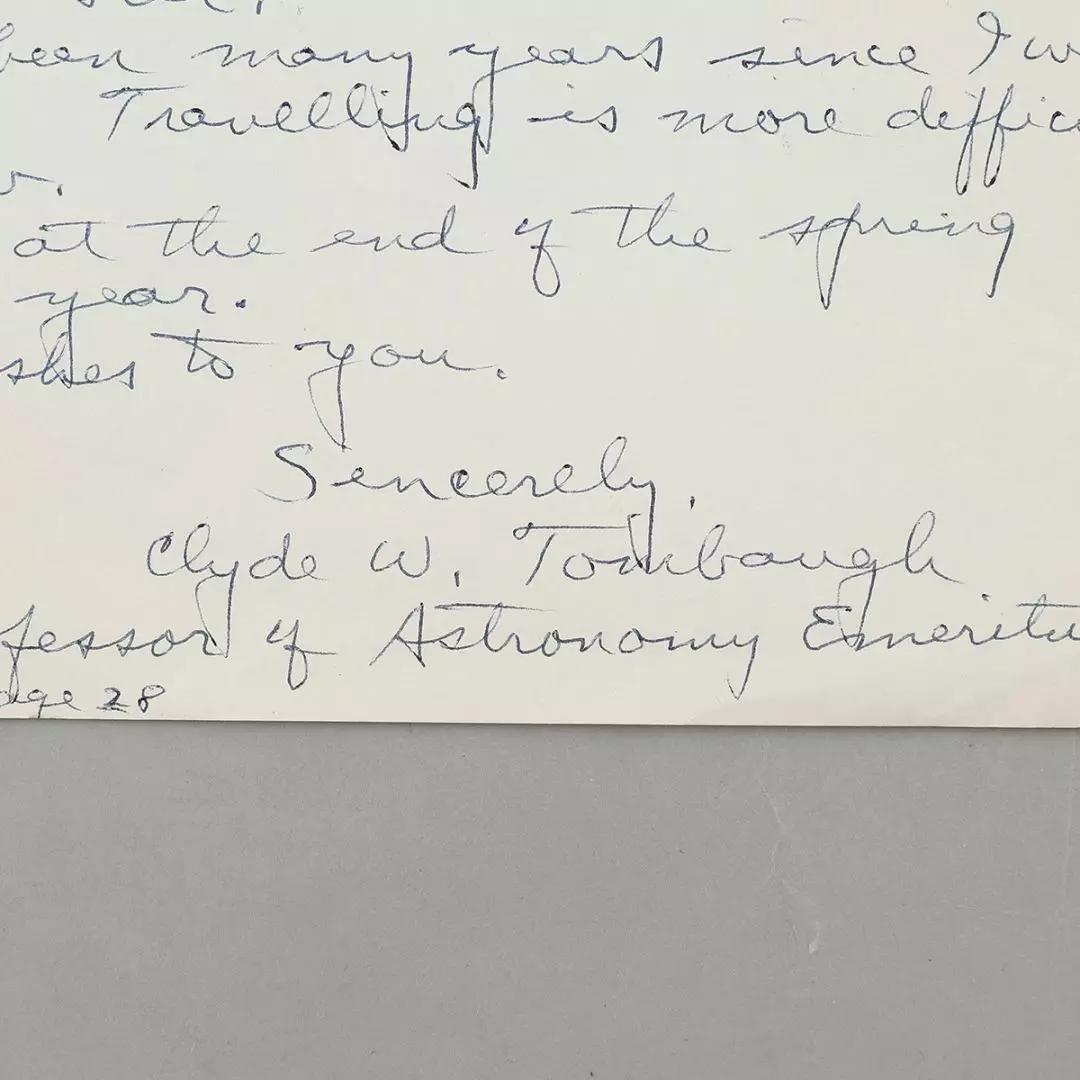 been many years since I w
Travelling is more diffic
at the end of the spring
year.
shes to you.
Sincerely,
Clyde W. Tombaugh
fessor of Astronomy Emeritu
age 28